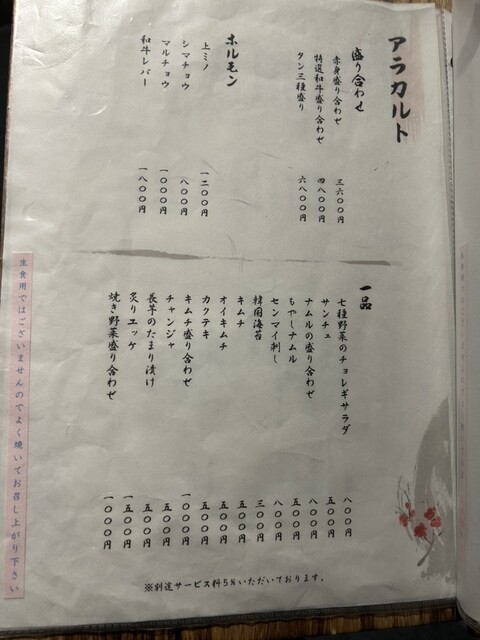 アラカルト
盛り合わせ
赤身盛り合わせ 三六〇〇円
特選和牛盛り合わせ 四八〇〇円
タン三種盛り 六八〇〇円
ホルモン
上ミノ 一二〇〇円
シマチョウ 八〇〇円
マルチョウ 一〇〇〇円
和牛レバー 一八〇〇円
一品
七種野菜のチョレギサラダ 八〇〇円
サンチュ 五〇〇円
ナムルの盛り合わせ 八〇〇円
もやしナムル 五〇〇円
センマイ刺し 八〇〇円
韓国海苔 三〇〇円
キムチ 五〇〇円
オイキムチ 五〇〇円
カクテキ 五〇〇円
キムチ盛り合わせ 一〇〇〇円
チャンジャ 五〇〇円
長芋のたまり漬け 五〇〇円
炙りエッケ 一五〇〇円
焼き野菜盛り合わせ 一〇〇〇円
生食用ではございませんのでよく焼いてお召し上がり下さい
※別途サービス料5%いただいております。